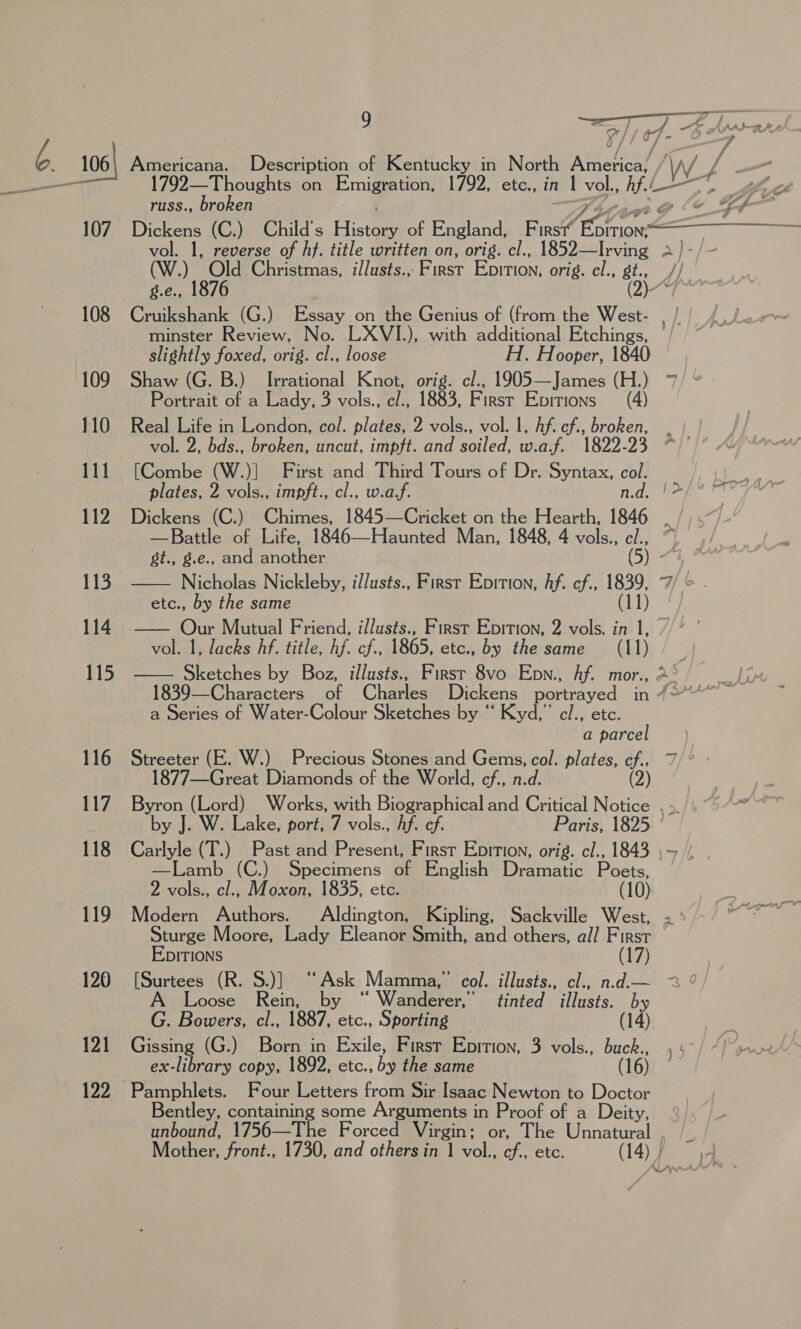 9
106 Americana. Description of Kentucky in North America,
1792—Thoughts on Emigration, 1792, etc., in 1 vol., hf.
russ., broken
107 Dickens (C.) Child's History of England, First Edition,
vol. 1, reverse of hf. title written on, orig. cl., 1852—Irving
(W.) Old Christmas, illusts., First Edition, orig. cl., gt.,
g.e., 1876 (2)
108 Cruikshank (G.) Essay on the Genius of (from the West-
minster Review, No. LXVI.), with additional Etchings,
slightly foxed, orig. cl., loose H. Hooper, 1840
109 Shaw (G. B.) Irrational Knot, orig. cl., 1905—James (H.)
Portrait of a Lady, 3 vols., cl., 1883, First Editions (4)
110 Real Life in London, col. plates, 2 vols., vol. 1, hf. cf., broken,
vol. 2, bds., broken, uncut, impft. and soiled, w.a.f. 1822-23
111 [Combe (W.)] First and Third Tours of Dr. Syntax, col.
plates, 2 vols., impft., cl., w.a.f. n.d.
112 Dickens (C.) Chimes, 1845—Cricket on the Hearth, 1846
—Battle of Life, 1846—Haunted Man, 1848, 4 vols., cl.,
gt., g.e., and another (5)
113 —— Nicholas Nickleby, illusts., First Edition, hf. cf., 1839,
etc., by the same (11)
114 —— Our Mutual Friend, illusts., First Edition, 2 vols. in 1,
vol. 1, lacks hf. title, hf. cf., 1865, etc., by the same (11)
115 —— Sketches by Boz, illusts., First 8vo Edn., hf. mor.,
1839—Characters of Charles Dickens portrayed in
a Series of Water-Colour Sketches by “Kyd,” cl., etc.
a parcel
116 Streeter (E. W.) Precious Stones and Gems, col. plates, cf.,
1877—Great Diamonds of the World, cf., n.d. (2)
117 Byron (Lord) Works, with Biographical and Critical Notice
by J. W. Lake, port, 7 vols., hf. cf. Paris, 1825
118 Carlyle (T.) Past and Present, First Edition, orig. cl., 1843
—Lamb (C.) Specimens of English Dramatic Poets,
2 vols., cl., Moxon, 1835, etc. (10)
119 Modern Authors. Aldington, Kipling, Sackville West,
Sturge Moore, Lady Eleanor Smith, and others, all First
Editions (17)
120 [Surtees (R. S.)] “Ask Mamma,” col. illusts., cl., n.d.—
A Loose Rein, by “Wanderer,” tinted illusts. by
G. Bowers, cl., 1887, etc., Sporting (14)
121 Gissing (G.) Born in Exile, First Edition, 3 vols., buck.,
ex-library copy, 1892, etc., by the same (16)
122 Pamphlets. Four Letters from Sir Isaac Newton to Doctor
Bentley, containing some Arguments in Proof of a Deity,
unbound, 1756—The Forced Virgin; or, The Unnatural
Mother, front., 1730, and others in 1 vol., cf., etc. (14)